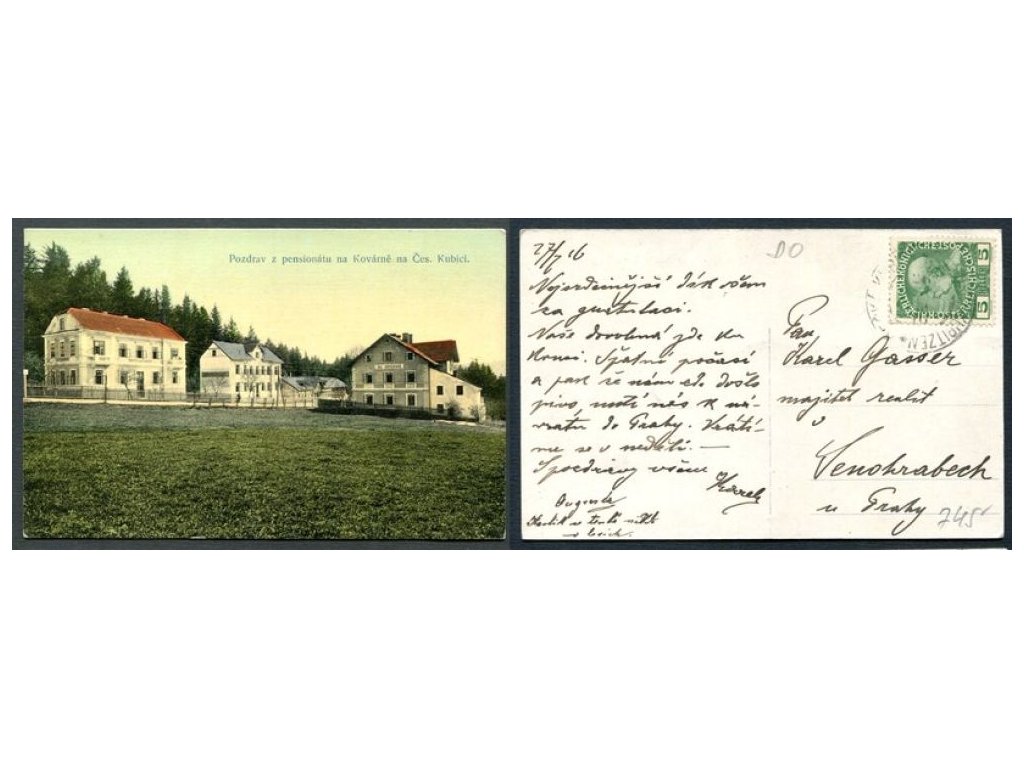 Pozdrav z pensionátu na Kovárně na Čes. Kubici.
27/7 16
DO
Nejsrdečnější dík všem
za gratulaci.
Naše dovolená jde ku
konci. Špatné počasí
a pak že nám zde došlo
pivo, nutí nás k ná-
vratu do Prahy. Vrátí-
me se v neděli. —
S pozdravy všem
Karel
Augusta
v lesích.
5 5
KUBITZEN
Pan
Karel Gasser
majitel realit
v
Senohrabech
u Prahy
745